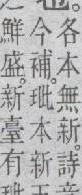 各本無新。詩
今補。玼本新
鮮盛。新臺有